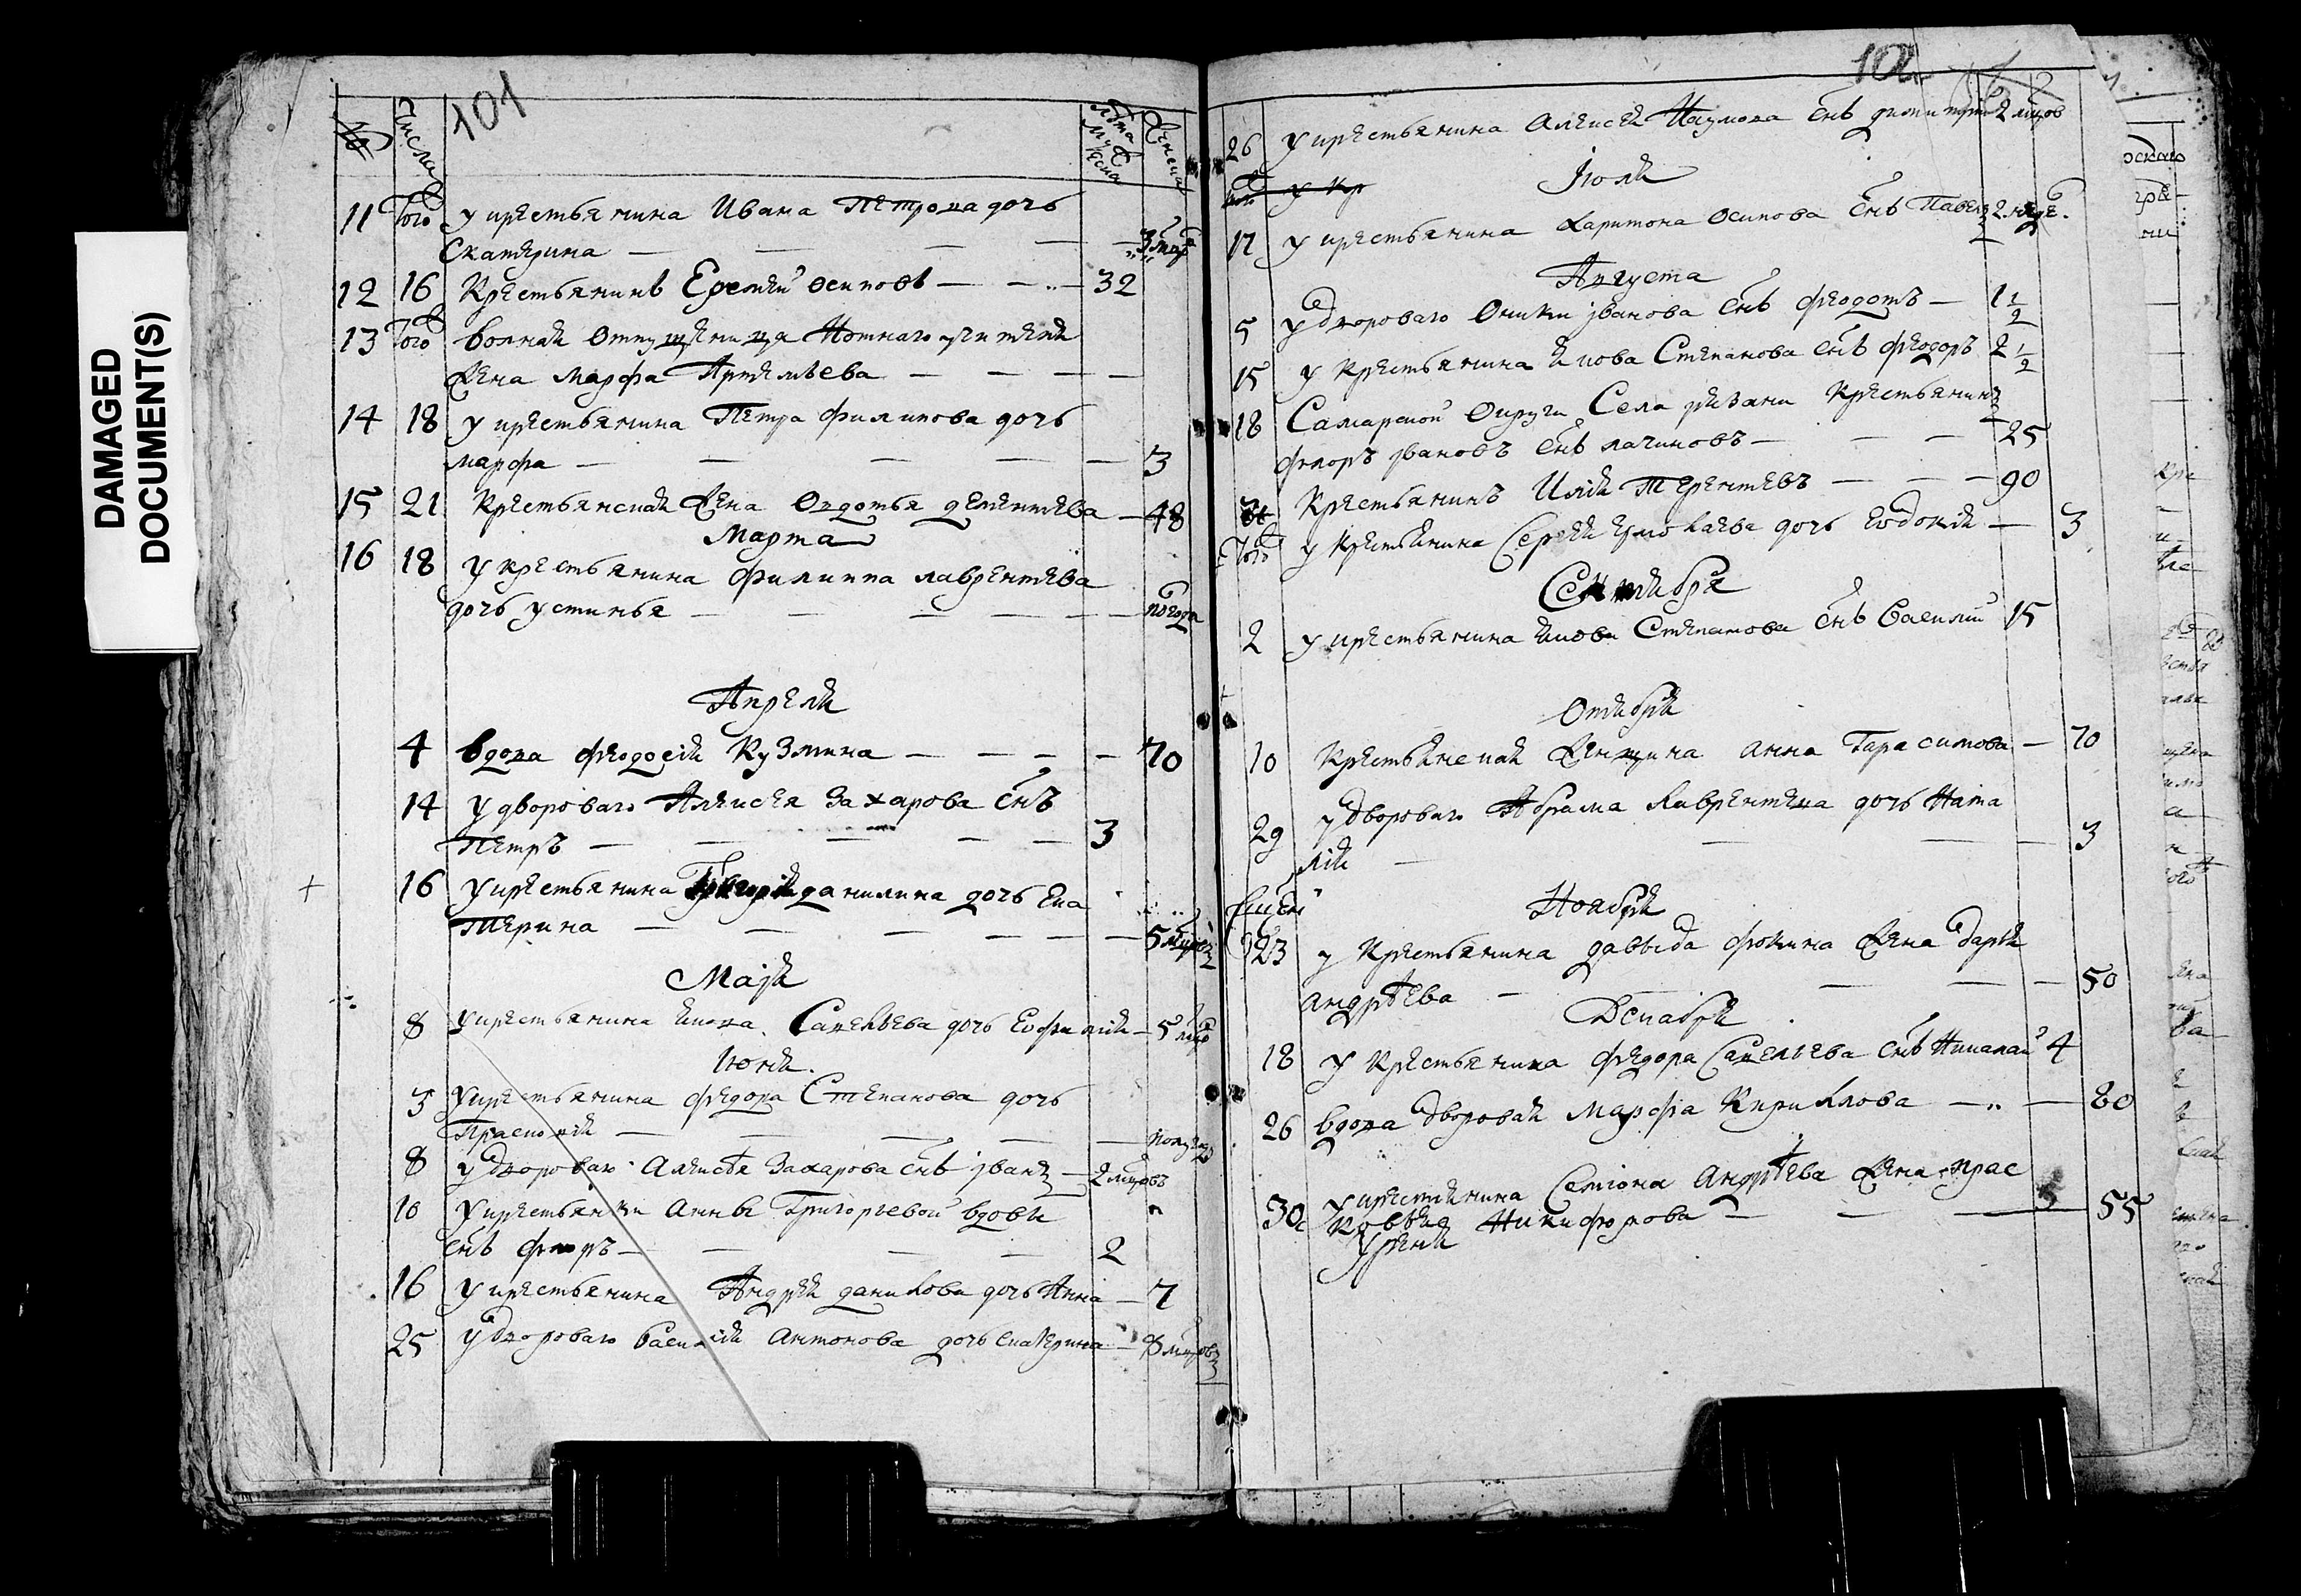 DAMAGED
DOCUMENT(S)
101
№ Числа Лѣта Мужеска Женска
11 Того у крестьянина Ивана Петрова дочь
Екатерина — 3 мца
12 16 Крестьянинъ Еремей Осиповъ — 32
13 Того вольная отпущеница Нотнаго учителя
жена Марфа Артемьева —
14 18 у крестьянина Петра Филипова дочь
Марфа — 3
15 21 Крестьянская жена Овдотья Дементьева — 48
Марта
16 18 у крестьянина Филиппа Лаврентьева
дочь Устинья — погода
Апреля
4 вдова Феодосія Кузмина — 70
14 у двороваго Алексея Захарова снъ
Петръ — 3
16 у крестьянина Григорья Данилина дочь Ека
терина — 5
Маія
8 у крестьянина Іакова Савельева дочь Евфимія — 5
Іюня
3 у крестьянина Федора Степанова дочь
Прасковія —
8 у двороваго Алексѣя Захарова снъ Іванъ — 2 мцовъ
10 у крестьянки Анны Григорьевой вдовы
снъ Флоръ — 2
16 у крестьянина Андрея Данилова дочь Анна — 7
25 у двороваго Василія Антонова дочь Екатерина — 8 мцовъ
102
26 у крестьянина Алексея Наумова снъ Димитрій 2 мцов
Іюля
того у кр
17 у крестьянина Харитона Осипова снъ Павелъ 2. неде.
Августа
5 у двороваго Іванова снъ Феодотъ — 1 1/2
15 у крестьянина Іакова Степанова снъ Феодоръ 2 1/2
18 Самарской округи Села Рязани Крестьянинъ
Флоръ Івановъ снъ Лачиновъ — 25
Крестьянинъ Илія Терентьевъ — 90
Того у крестьянина Сергея Ермолаева дочь Евдокія — 3
Сентября
2 у крестьянина Іакова Степанова снъ Василий 15
Октября
10 Крестьянская женщина Анна Гарасимова — 70
29 у двороваго Абрама Лаврентьева дочь Ната
лія — 3
Ноября
23 у крестьянина Давыда Фокина жена Дарья
Андрѣева — 50
Декабря
18 у крестьянина Федора Савельева снъ Николай 4
26 вдова дворовая Марфа Кирилова — 80
30 у крестьянина Семіона Андрѣева жена Прас
ковья Никифорова — 55